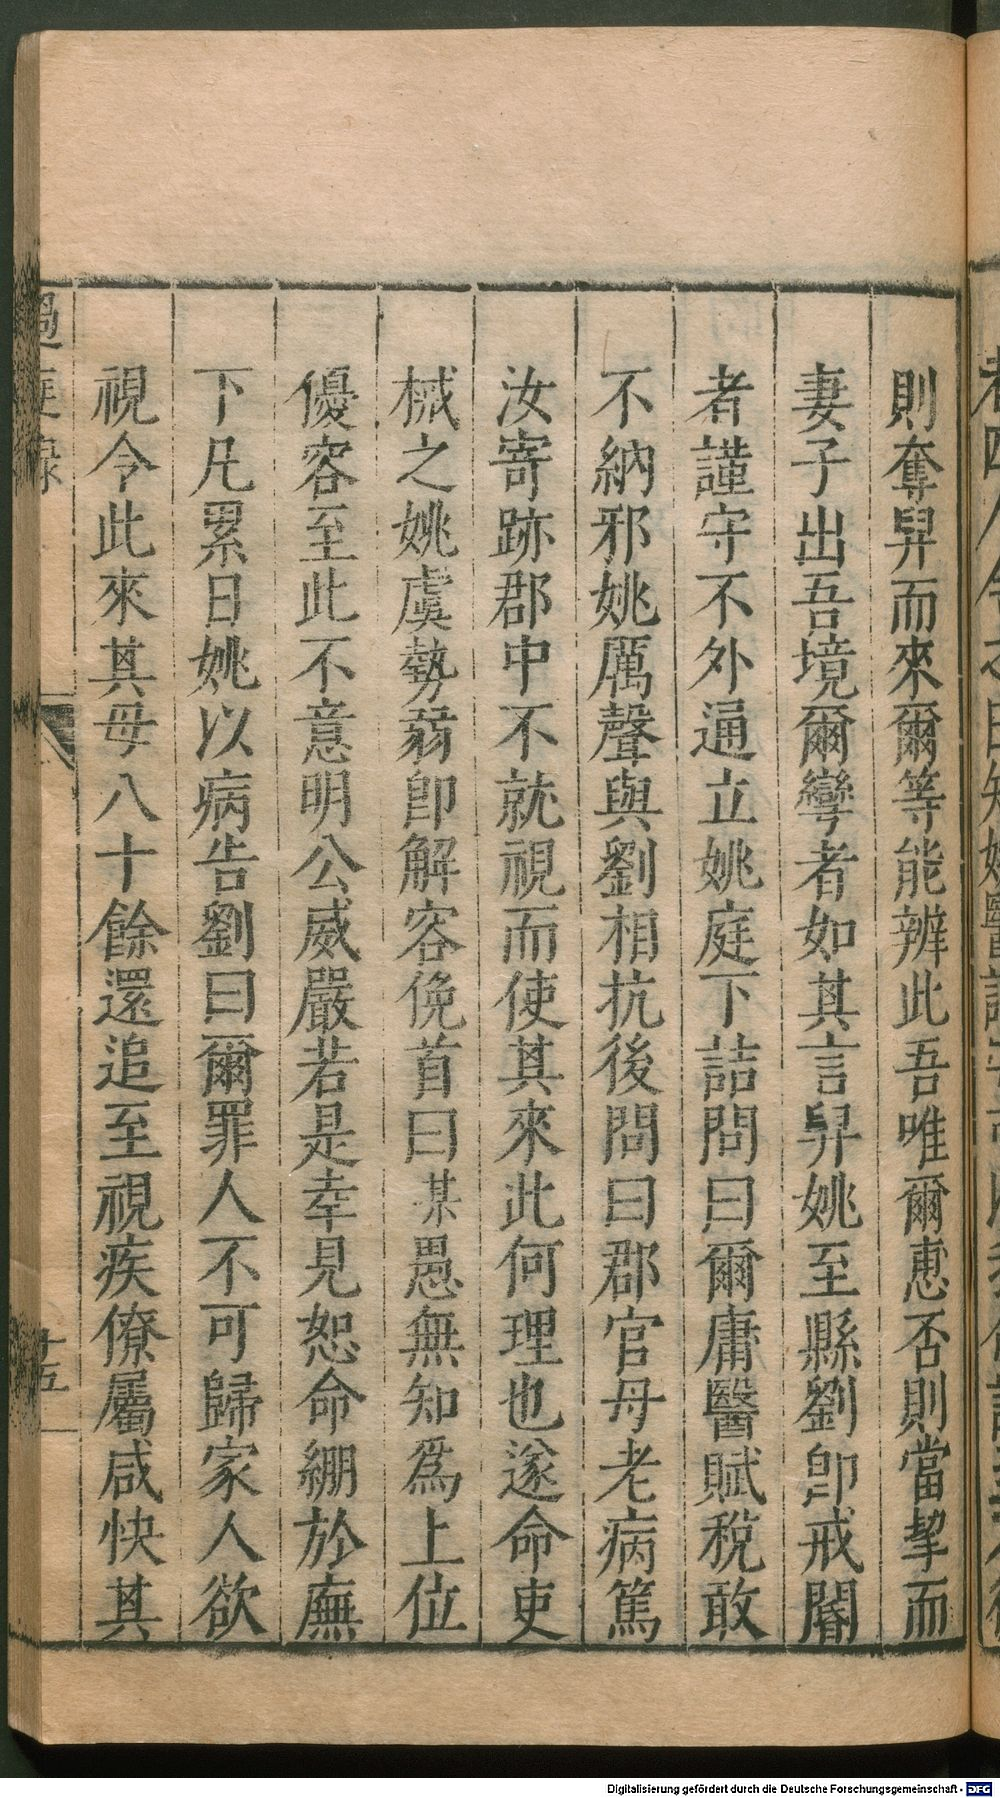 則奪舁而來爾等能辨此吾唯爾恵否則當挈而
妻子出吾境爾孿者如其言舁姚至縣劉卽戒閽
者謹守不外通立姚庭下詰問曰爾庸醫賦稅敢
不納邪姚厲聲與劉相抗後問曰郡官母老病篤
汝寄跡郡中不就視而使其來此何理也遂命吏
械之姚虞勢窮卽解容俛首曰某愚無知爲上位
優容至此不意明公威嚴若是幸見恕命綳於廡
下凡累日姚以病告劉曰爾罪人不可歸家人欲
視令此來其母八十餘還追至視疾僚屬咸快其
過庭錄
十五
Digitalisierung gefördert durch die Deutsche Forschungsgemeinschaft - DFG